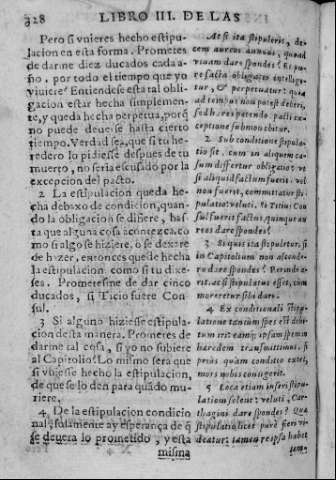 328
LIBRO III. DE LAS
Pero si vuieres hecho estipu-
lacion en esta forma. Prometes
de darme diez ducados cada a-
ño, por todo el tiempo que yo
viuiere? Entiendese esta tal obli-
gacion estar hecha simplemen-
te, y queda hecha perpetua, porq̃
no puede deuerse hasta cierto
tiempo. Verdad sea, que si tu he-
redero lo pidiesse despues de tu
muerto, no seria escusado por la
excepcion del pacto.
2 La estipulacion queda he-
cha debaxo de condicion, quan-
do la obligacion se difiere, has-
ta que alguna cosa acontezca, co
mo si algo se hiziere, o se dexare
de hazer, entonces quede hecha
la estipulacion como si tu dixe-
sea. Prometesme de dar cinco
ducados, si Ticio fuere Con-
sul.
3 Si alguno hiziesse estipula-
cion desta manera. Prometes de
darme tal cosa, si yo no subiere
al Capitolio? Lo mismo sera que
si vuiesse hecho la estipulacion,
de que se lo den para quãdo mu-
riere.
4 De la estipulacion condicio
nal, solamente ay esperança de q̃
se deuera lo prometido, y esta
misma
At si ita stipuleris, de-
cem aureos annuos, quoad
viuam dare spondes? Et pu-
re facta obligatio intellige-
tur, & perpetuatur: quia
ad tempus non potest deberi,
sed hæres petendo pacti ex-
ceptione submouebitur.
2 Sub conditione stipula-
tio fit, cum in aliquem ca-
sum differtur obligatio: vt
si aliquid factum fuerit, vel
non fuerit, committatur sti-
pulatio: veluti, si Titius Con
sul fuerit factus, quinque au
reos dare spondes?
3 Si quis ita stipuletur, si
in Capitolium non ascende-
ro dare spondes? Perinde e-
rit, ac si stipulatus esset, cum
moreretur sibi dare.
4 Ex conditionali stipu-
latione tantum spes est debi-
tum iri: eamq; ipsam spem in
hæredem transmittimus, si
prius quàm conditio extet,
mors nobis contigerit.
5 Loca etiam inseri stipu-
lationi solent: veluti, Car-
thagini dare spondes? Quæ
stipulatio, licet purè fieri vi-
deatur: tamen re ipsa habet